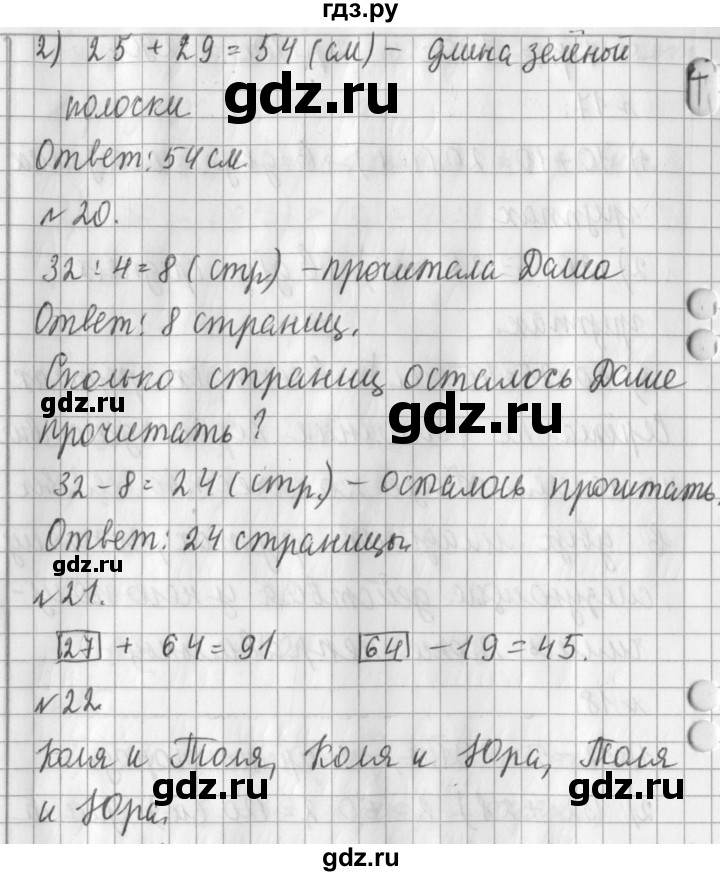 гдз.ру
2) 25 + 29 = 54 (см) - длина зелёной
полоски
gdz.ru
Ответ: 54 см.
№ 20.
32 : 4 = 8 (стр) - прочитала Даша
Ответ: 8 страниц.
Сколько страниц осталось Даше
gdz.ru
gdz.ru
прочитать?
32 - 8 = 24 (стр.) - осталось прочитать.
Ответ: 24 страницы.
gdz.ru
№ 21.
27 + 64 = 91 64 - 19 = 45.
№ 22.
Коля и Толя, Коля и Юра, Толя
gdz.ru
gdz.ru
и Юра.
gdz.ru